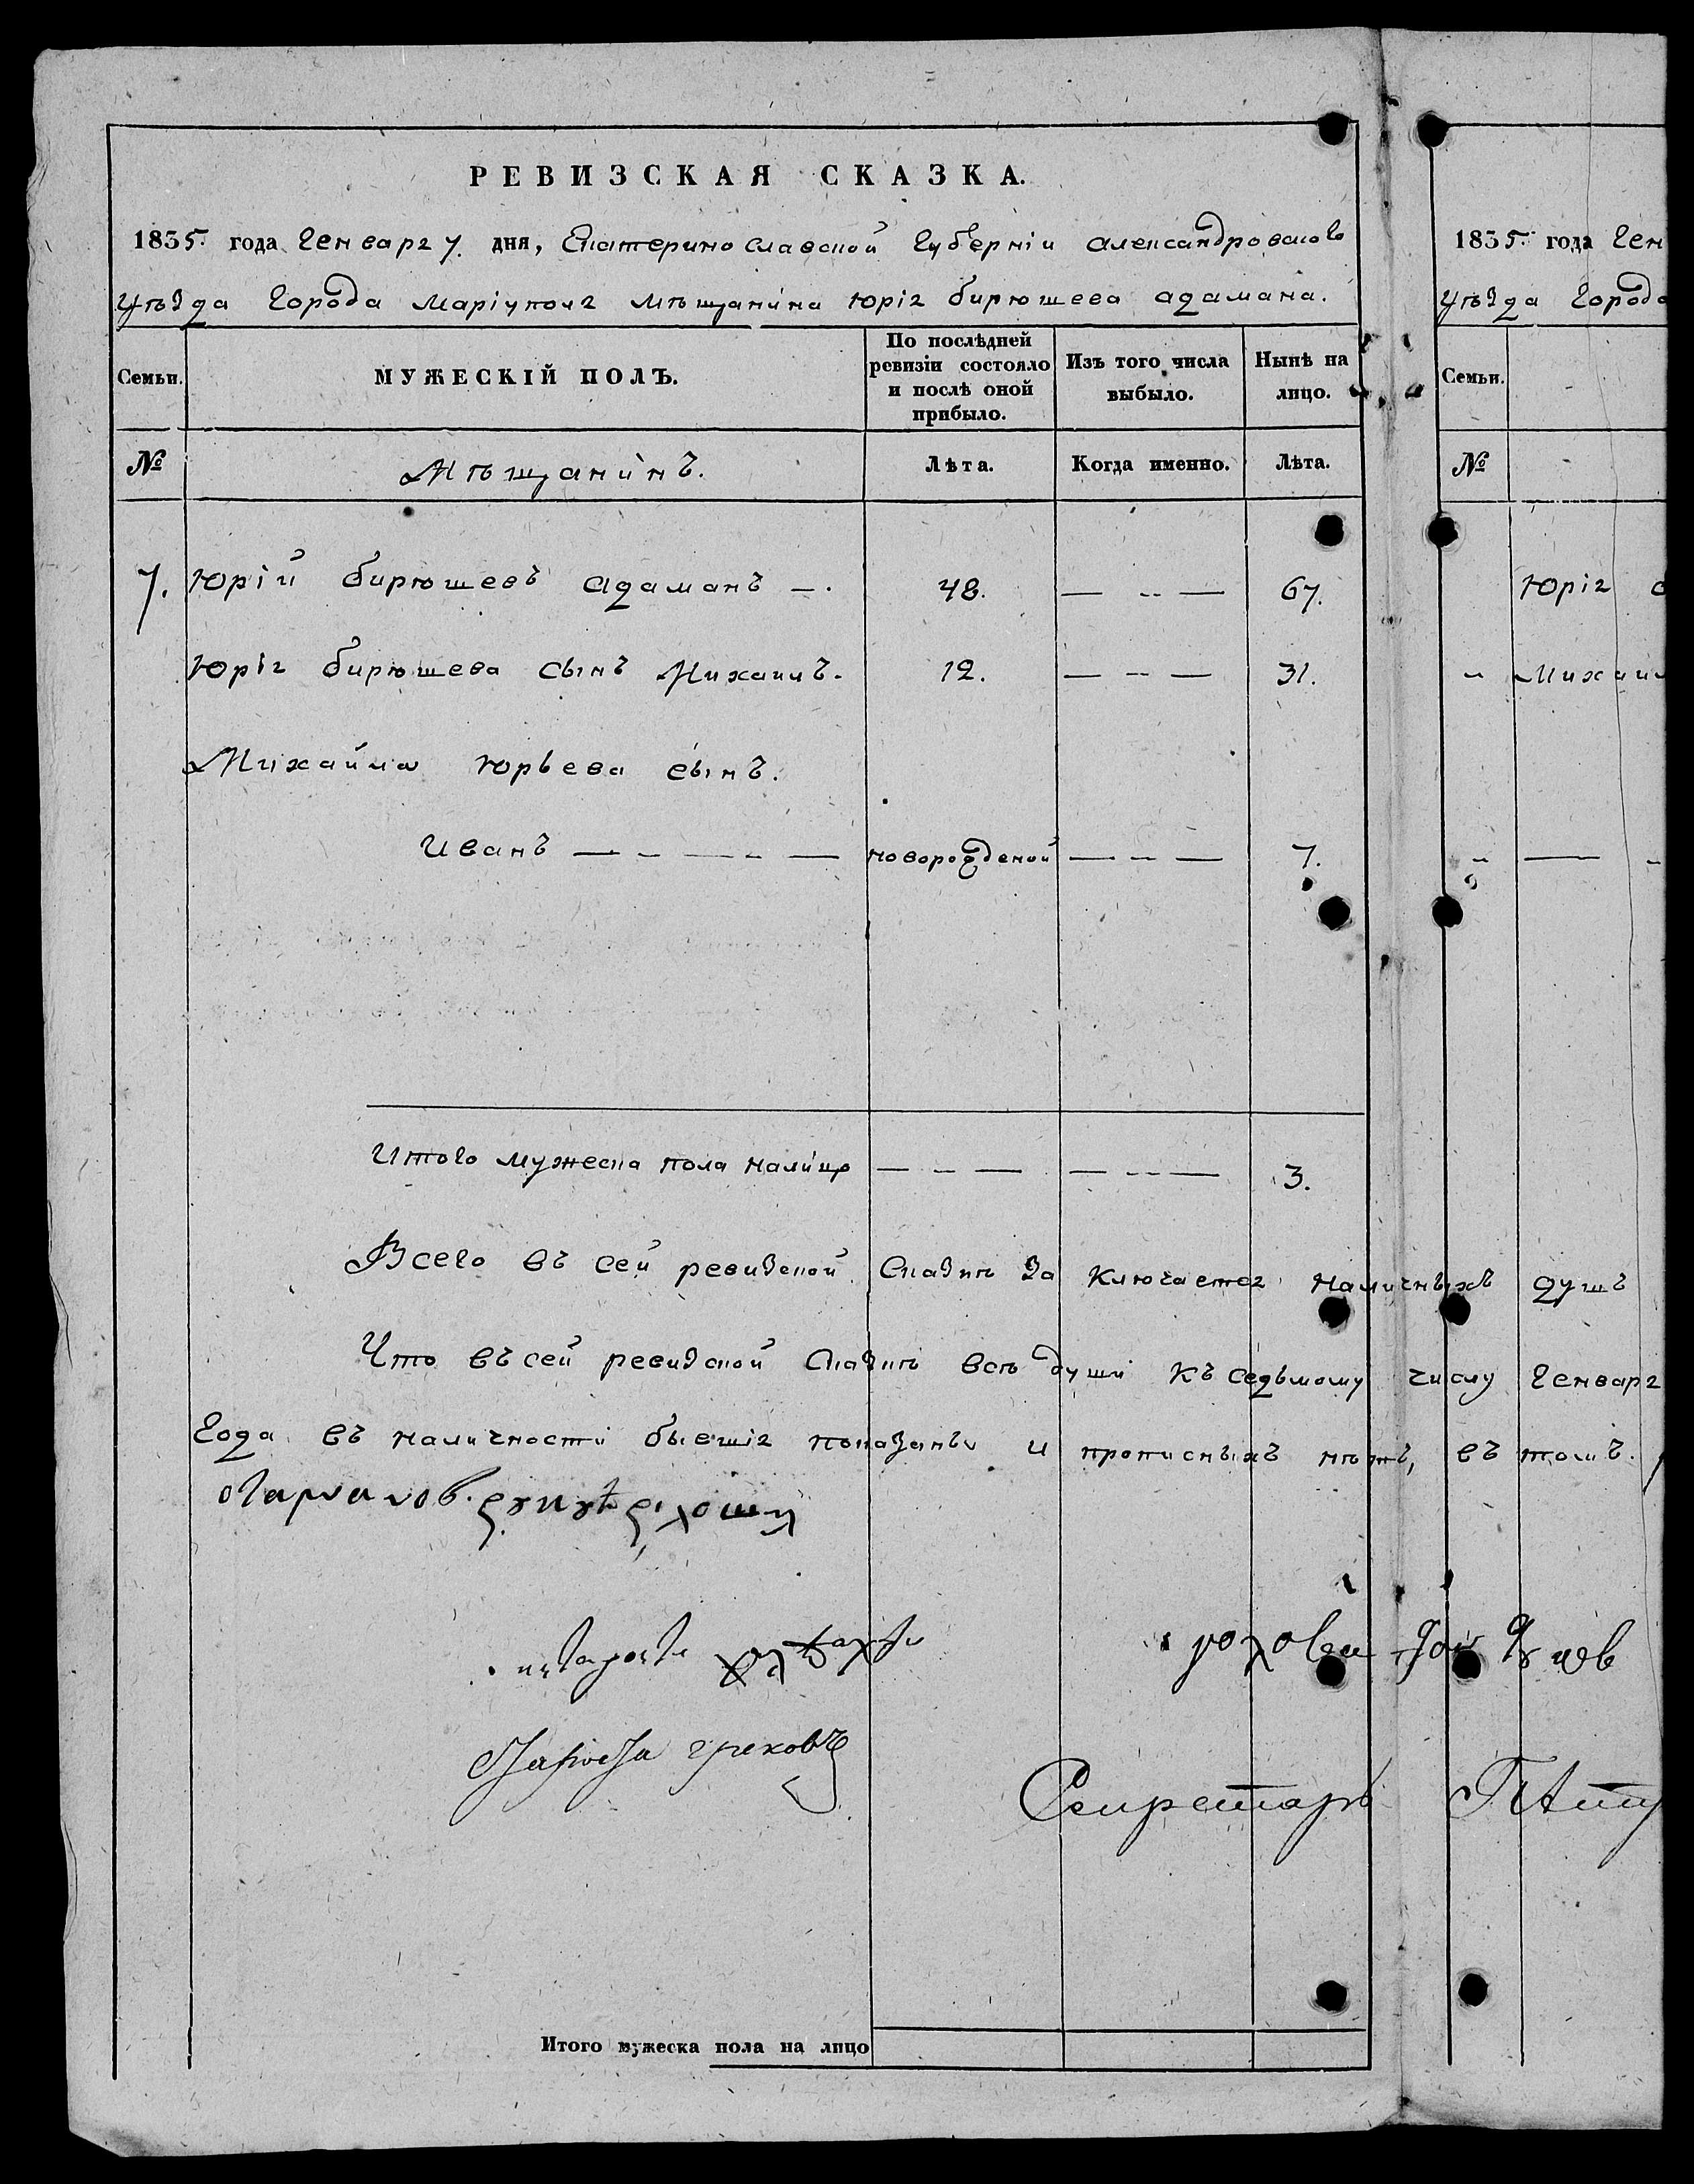 РЕВИЗСКАЯ СКАЗКА.
1835 года Генваря 7. дня, Екатеринославской Губерніи александровского
уѣзда Города Маріуполя мѣщанина Юрія бирюшева адамана.
Семьи.
МУЖЕСКІЙ ПОЛЪ.
По послѣдней ревизіи состояло и послѣ оной прибыло.
Изъ того числа выбыло.
Нынѣ на лицо.
№
Мѣщанинъ.
Лѣта.
Когда именно.
Лѣта.
7. Юрій бирюшевъ адаманъ —. 48. — -- — 67.
Юрія бирюшева сынъ Михаилъ. 12. — -- — 31.
Михайла Юрьева сынъ.
Иванъ — - — - — новорожденой — -- — 7.
Итого мужеска пола налицо — - — — -- — 3.
Всего въ сей ревизской Сказкѣ За ключается наличныхъ душъ
Что въ сей ревизской Сказкѣ всѣ души къ седьмому числу Генваря
Года въ наличности бывшія показаны и прописныхъ нѣтъ, въ томъ.
Староста грековъ
Секретарь
Итого мужеска пола на лицо
1835 года Ген
уѣзда Города
Семьи.
№
Юрія
" Михайл